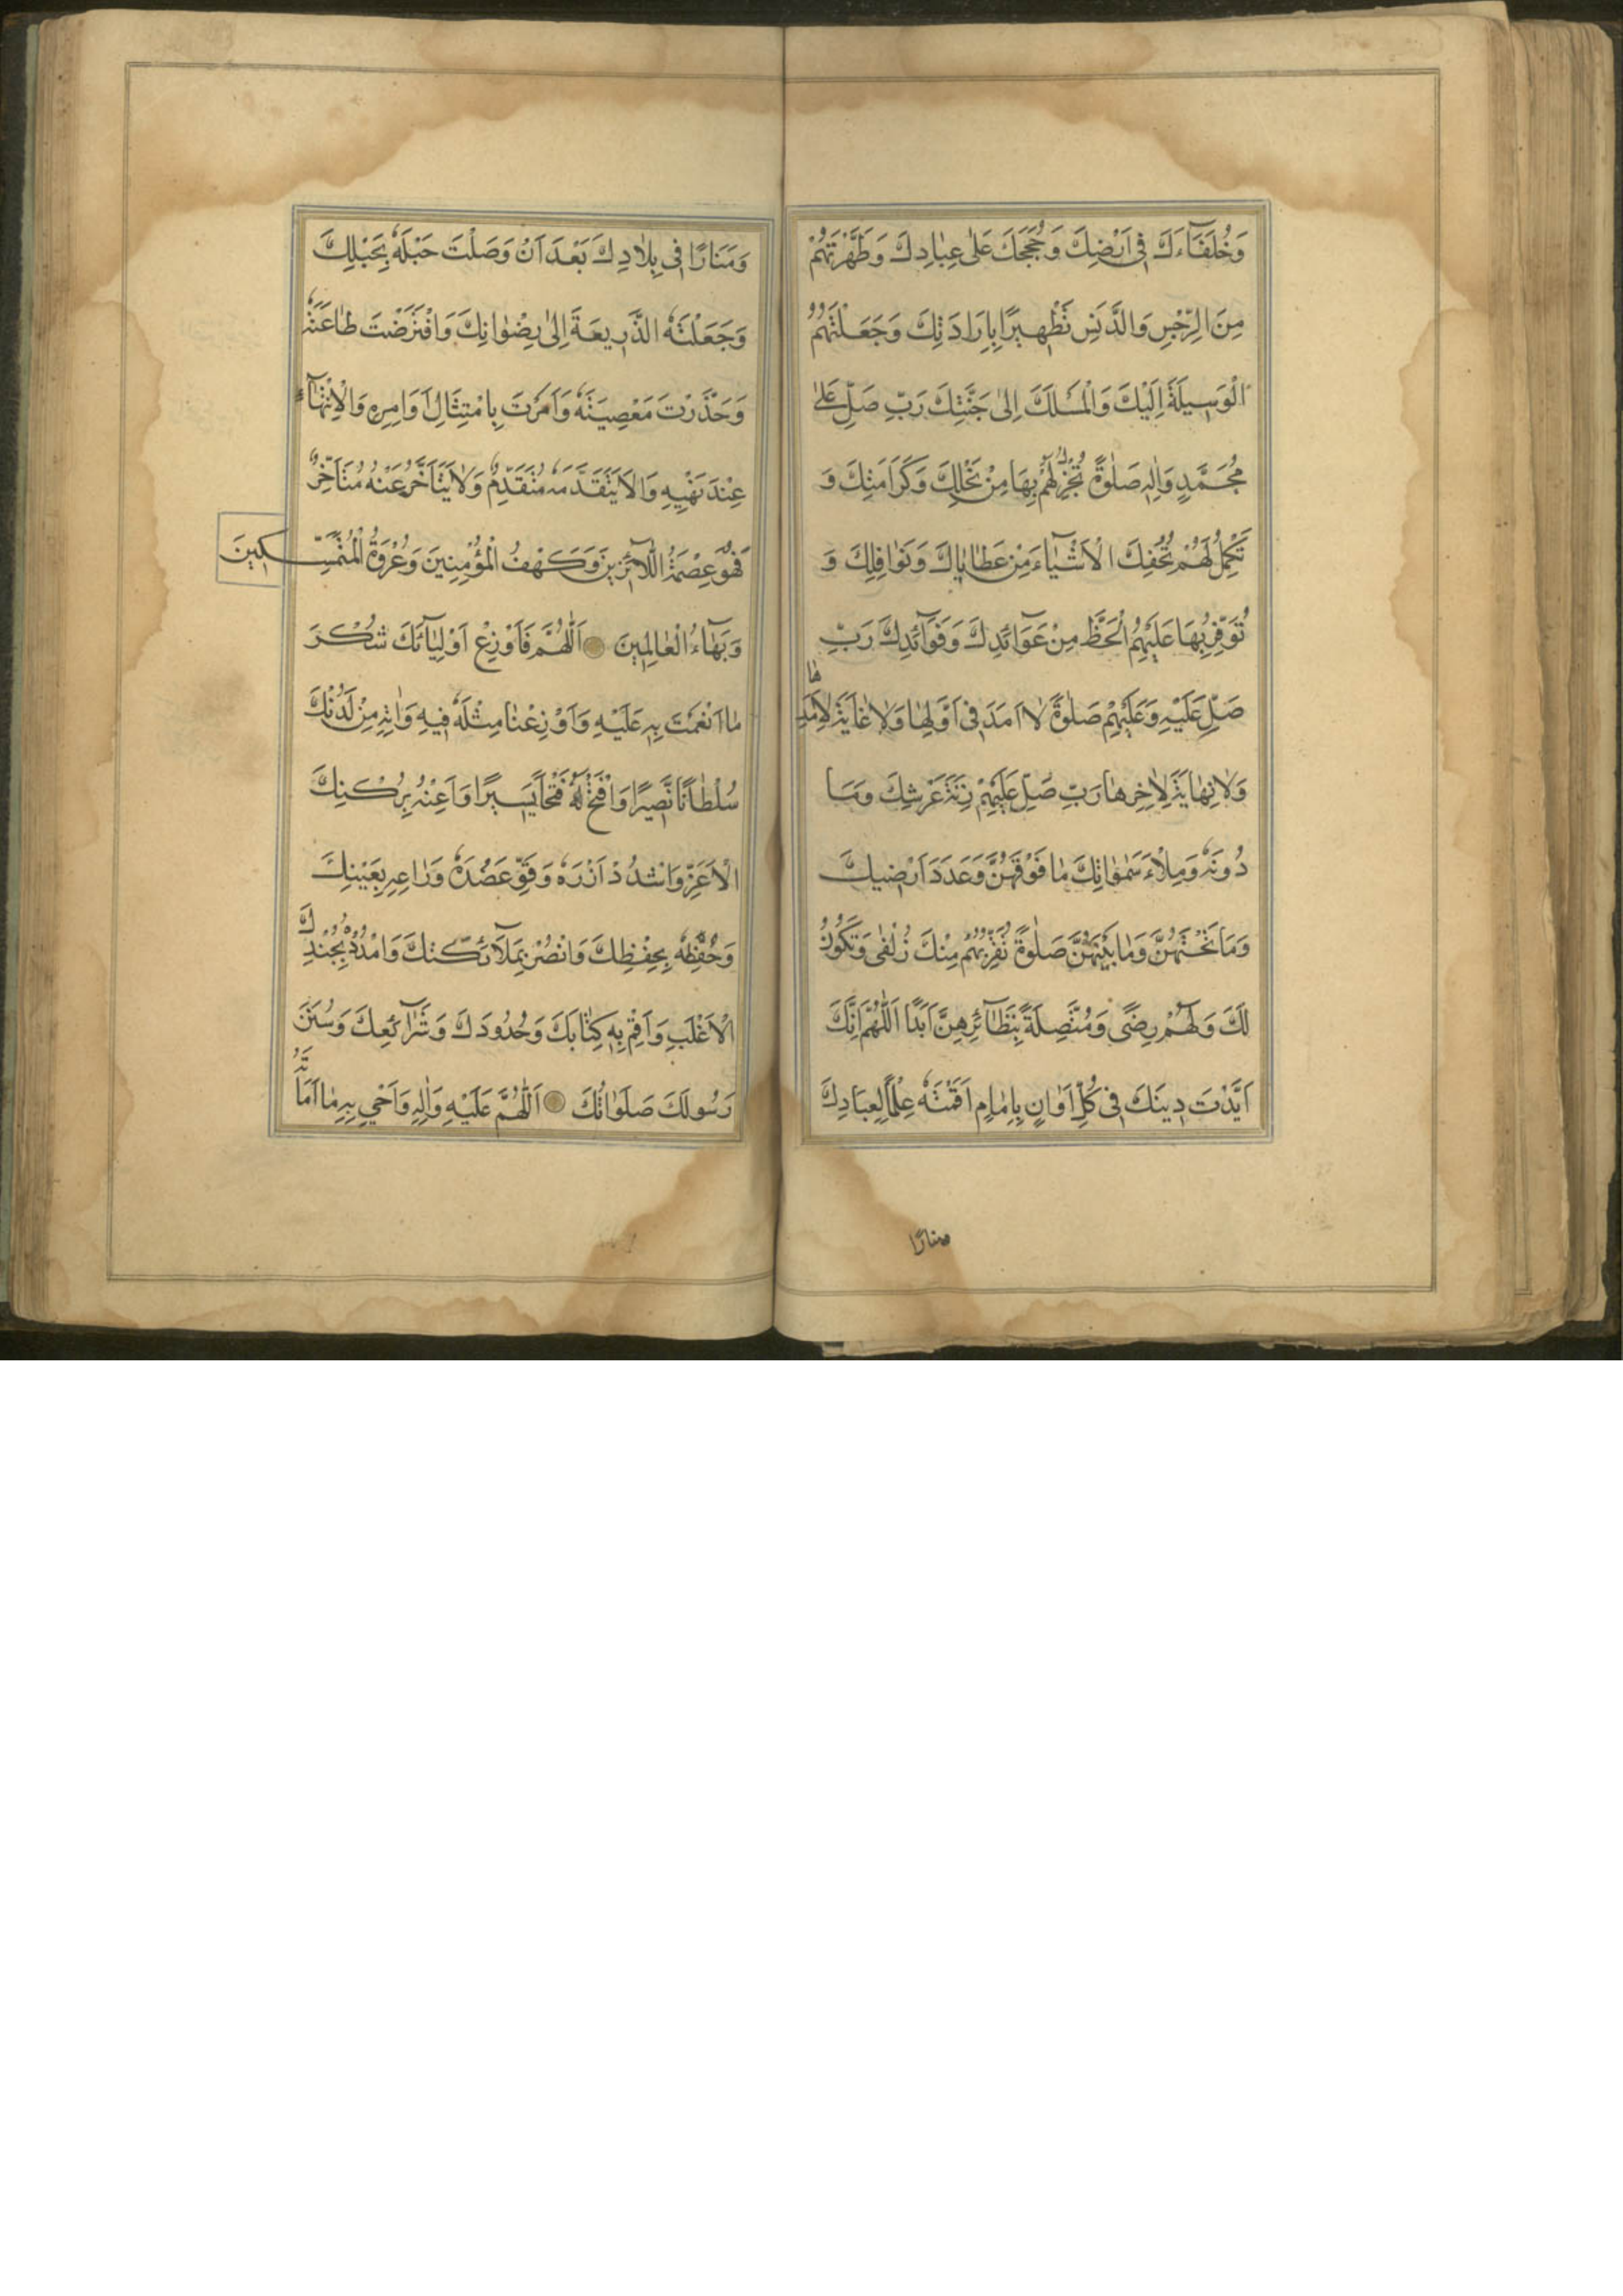 وَخُلَفَآءَكَ فِى اَرْضِكَ وَحُجَجَكَ عَلٰى عِبٰادِكَ وَطَهَّرْتَهُمْ
مِنَ الرِّجْسِ وَالدَّنَسِ تَطْهِيرًا بِاِرَادَتِكَ وَجَعَلْتَهُمُ
الْوَسِيلَةَ اِلَيْكَ وَالْمَسْلَكَ اِلىٰ جَنَّتِكَ رَبِّ صَلِّ عَلىٰ
مُحَمَّدٍ وَاٰلِهٖ صَلٰوةً تُجْزِلُ لَهُمْ بِهَا مِنْ نَحْلِكَ وَكَرَامَتِكَ وَ
تُكْمِلُ لَهُمْ تُحَفِكَ الْاَشْيٰآءَ مِنْ عَطٰايٰاكَ وَنَوٰافِلِكَ وَ
تُوَفِّرُ بِهَا عَلَيْهِمُ الْحَظَّ مِنْ عَوَآئِدِكَ وَفَوَآئِدِكَ رَبِّ
صَلِّ عَلَيْهِ وَعَلَيْهِمْ صَلٰوةً لاٰ اَمَدَ فِى اَوَّلِهٰا وَلاٰ غٰايَةَ لِاَمَدِهٰا
وَلاٰ نِهٰايَةَ لِاٰخِرِهٰا رَبِّ صَلِّ عَلَيْهِمْ زِنَةَ عَرْشِكَ وَمَا
دُونَهٗ وَمِلْأَ سَمٰوٰاتِكَ مٰا فَوْقَهُنَّ وَعَدَدَ اَرْضِيكَ
وَمَا تَحْتَهُنَّ وَمٰا بَيْنَهُنَّ صَلٰوةً تُقَرِّبُهُمْ مِنْكَ زُلْفٰى وَتَكُونُ
لَكَ وَلَهُمْ رِضًى وَمُتَّصِلَةً بِنَظٰآئِرِهِنَّ اَبَدًا اَللّٰهُمَّ اِنَّكَ
اَيَّدْتَ دِينَكَ فِى كُلِّ اَوٰانٍ بِاِمٰامٍ اَقَمْتَهٗ عَلَمًا لِعِبَادِكَ
منارًا
وَمَنَارًا فِى بِلاٰدِكَ بَعْدَ اَنْ وَصَلْتَ حَبْلَهٗ بِحَبْلِكَ
وَجَعَلْتَهٗ الذَّرِيعَةَ اِلىٰ رِضْوٰانِكَ وَافْتَرَضْتَ طٰاعَتَهٗ
وَحَذَّرْتَ مَعْصِيَتَهٗ وَاَمَرْتَ بِامْتِثَالِ اَوَامِرِهٖ وَالْاِنْتِهٰآءِ
عِنْدَ نَهْيِهِ وَالاَّ يَتَقَدَّمَهٗ مُتَقَدِّمٌ وَلاٰ يَتَأَخَّرَ عَنْهُ مُتَأَخِّرٌ
فَهُوَ عِصْمَةُ اللّآئِذِينَ وَكَهْفُ الْمُؤْمِنِينَ وَعُرْوَةُ الْمُتَمَسِّكِينَ
وَبَهٰآءُ الْعٰالَمِينَ اَللّٰهُمَّ فَاَوْزِعْ اَوْلِيٰآئَكَ شُكْرَ
مٰا اَنْعَمْتَ بِهٖ عَلَيْهِ وَاَوْزِعْنٰا مِثْلَهٗ فِيهِ وَاٰتِهٖ مِنْ لَدُنْكَ
سُلْطٰانًا نَصِيرًا وَافْتَحْ لَهٗ فَتْحًا يَسِيرًا وَاَعِنْهُ بِرُكْنِكَ
الْاَعَزِّ وَاشْدُدْ اَزْرَهٗ وَقَوِّ عَضُدَهٗ وَرٰاعِهِ بِعَيْنِكَ
وَحُفَّظِهٗ بِحِفْظِكَ وَانْصُرْ بِمَلآَئِكَتِكَ وَامْدُدْهُ بِجُنْدِكَ
الْاَغْلَبِ وَاَقِمْ بِهٖ كِتٰابَكَ وَحُدُودَكَ وَشَرٰآئِعَكَ وَسُنَنَ
رَسُولِكَ صَلَوٰاتُكَ اَللّٰهُمَّ عَلَيْهِ وَاٰلِهٖ وَاَحْىِ بِهٖ مٰا اَمَاتَهُ